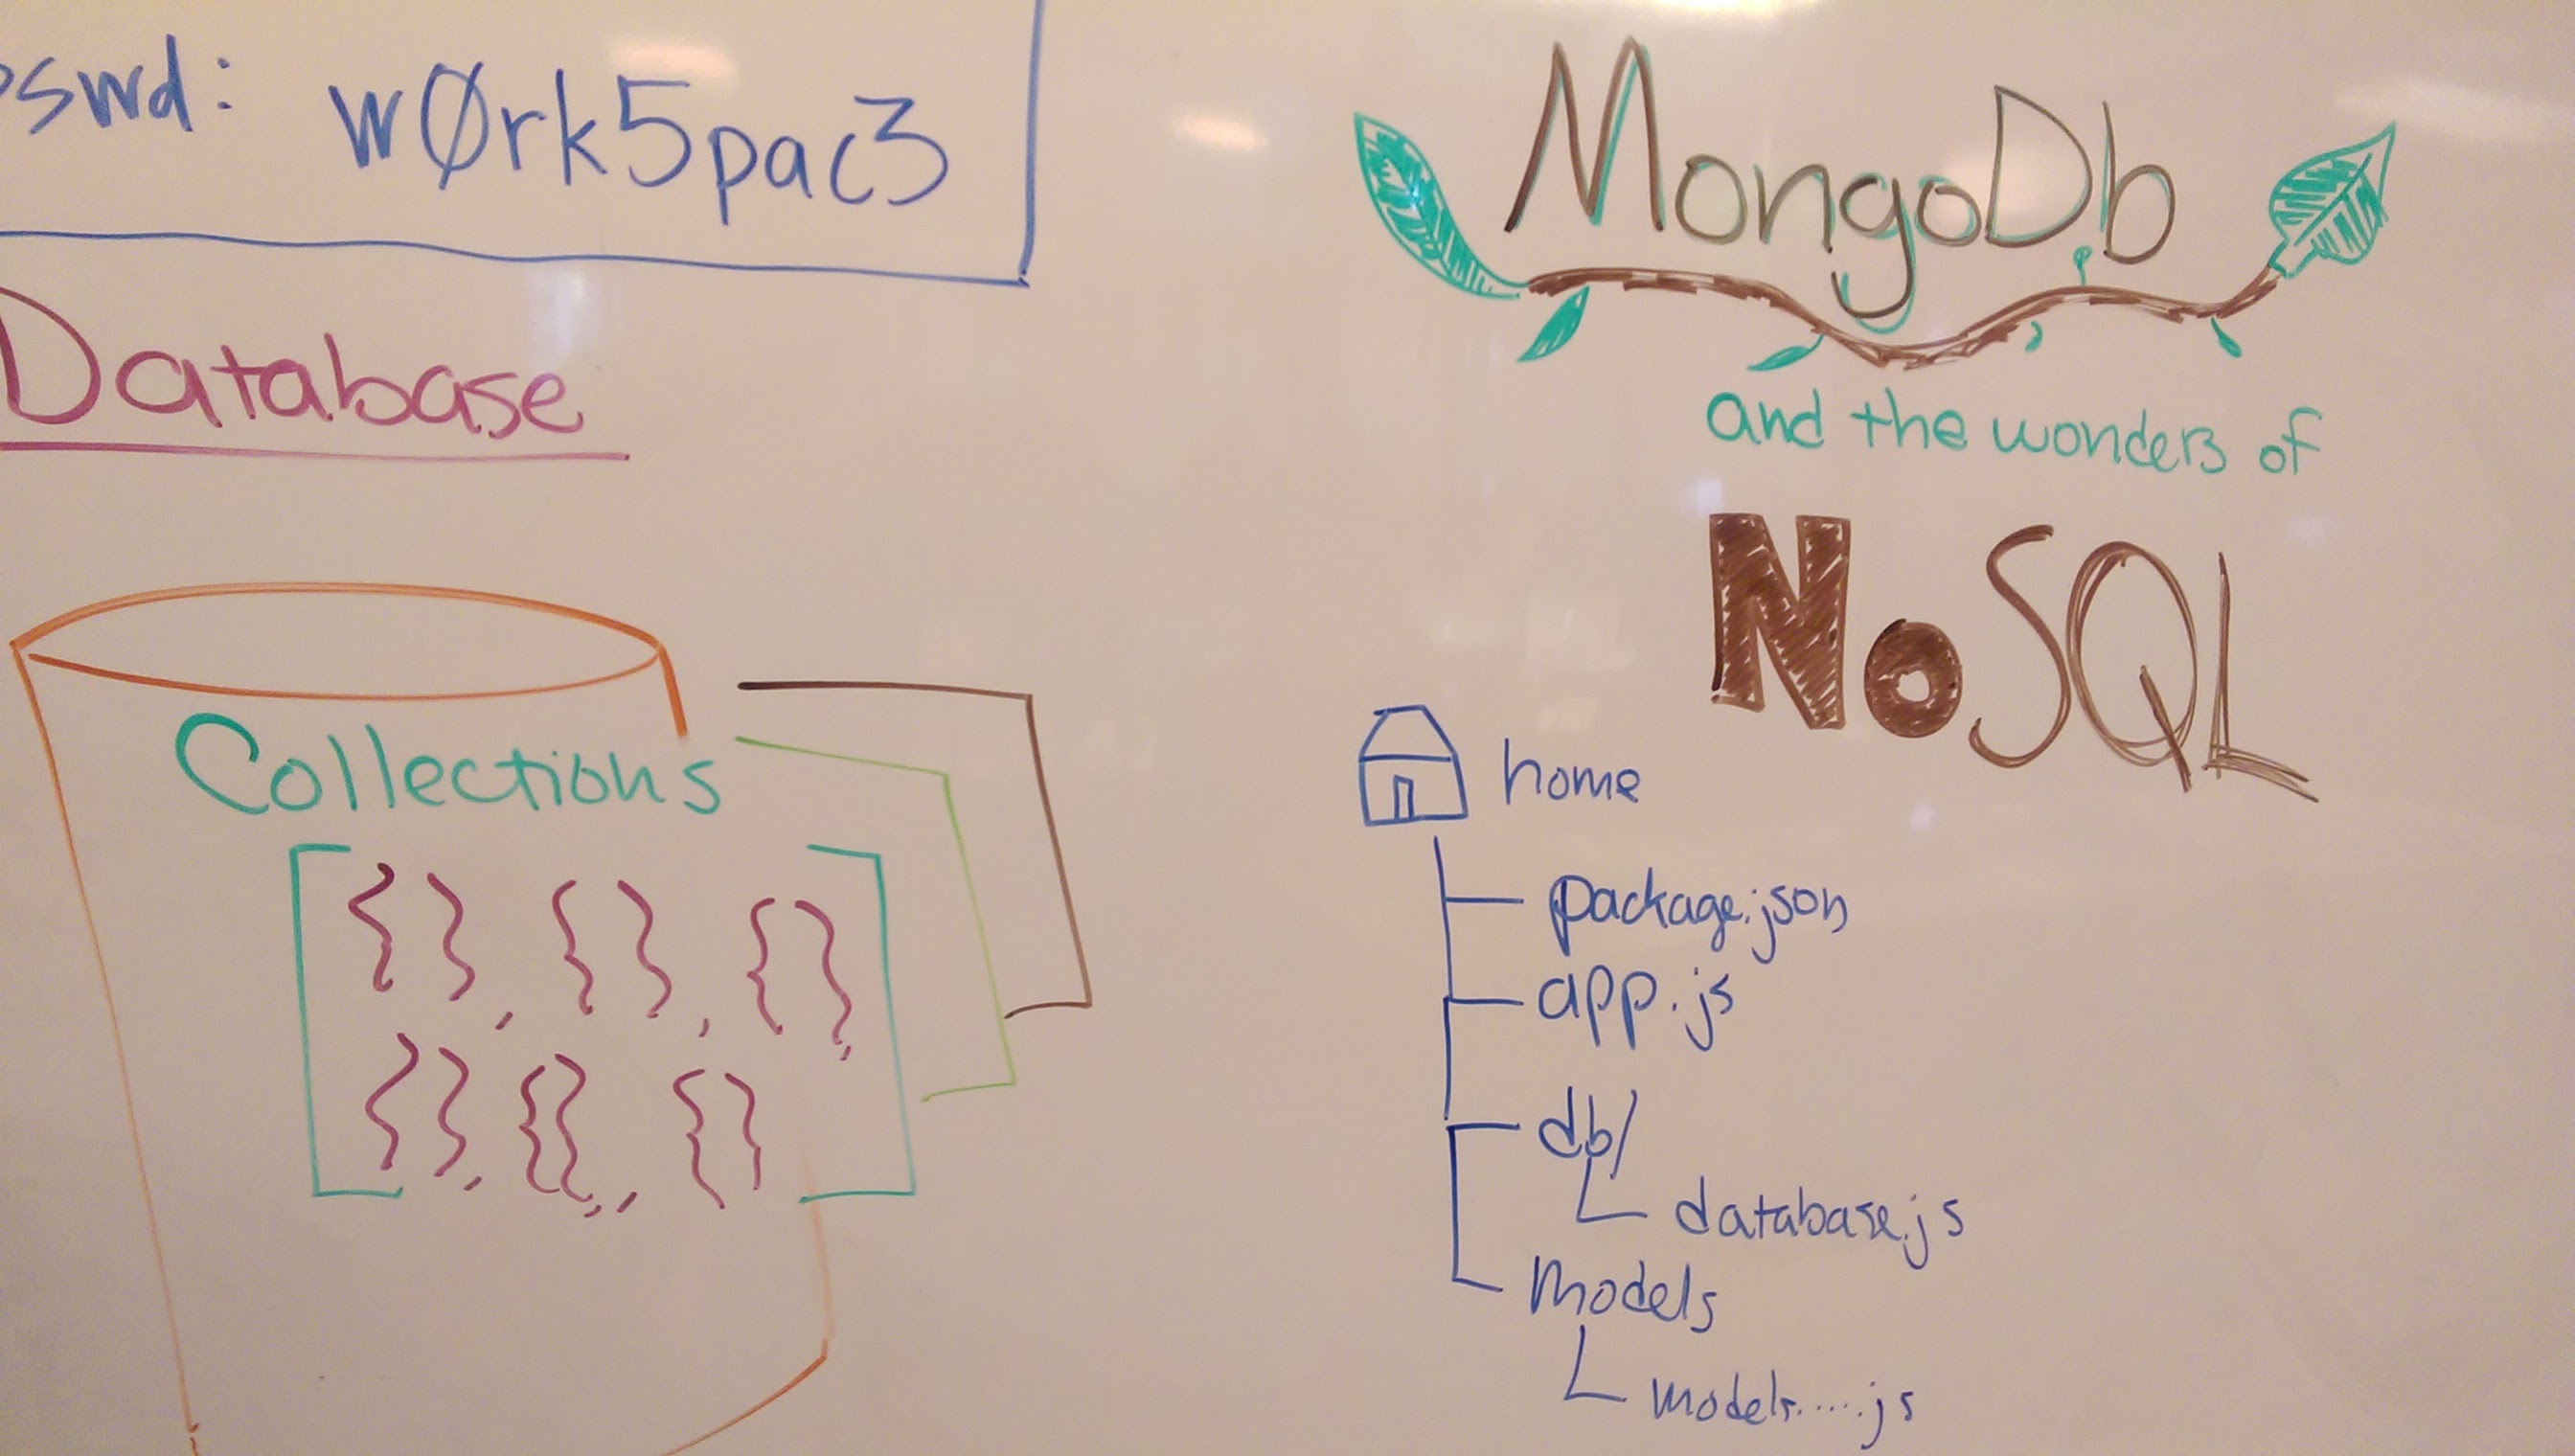 pswd: wØrk5pac3
Database
Collections
[ { }, { }, { },
{ }, { }, , { } ]
MongoDb
and the wonders of
NoSQL
home
package.json
app.js
db/
database.js
models
models.....js